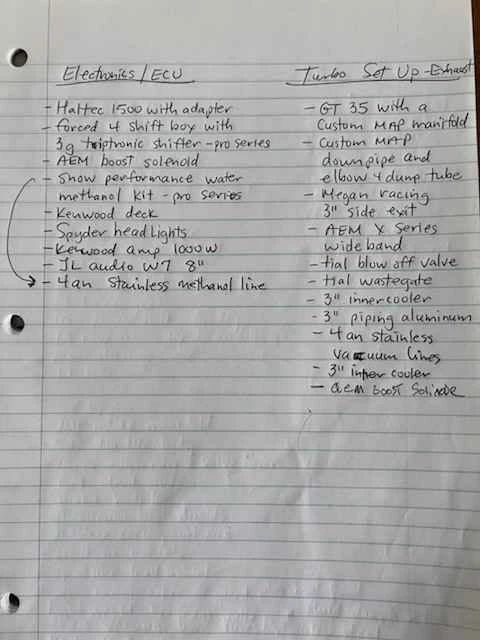 Electronics/ECU
- Haltec 1500 with adapter
- forced 4 shift box with
3g triptronic shifter - pro series
- AEM boost solenoid
- Snow performance water
methanol kit - pro series
- Kenwood deck
- Spyder head lights
- Kenwood amp 1000w
- JL audio W7 8"
- 4an stainless methanol line
Turbo Set Up - Exhaust
- GT 35 with a
Custom MAP manifold
- Custom MAP
downpipe and
elbow 4 dump tube
- Megan racing
3" side exit
- AEM X Series
wide band
- tial blow off valve
- tial wastegate
- 3" innercooler
- 3" piping aluminum
- 4an stainless
vacuum lines
- 3" inner cooler
- aem boost